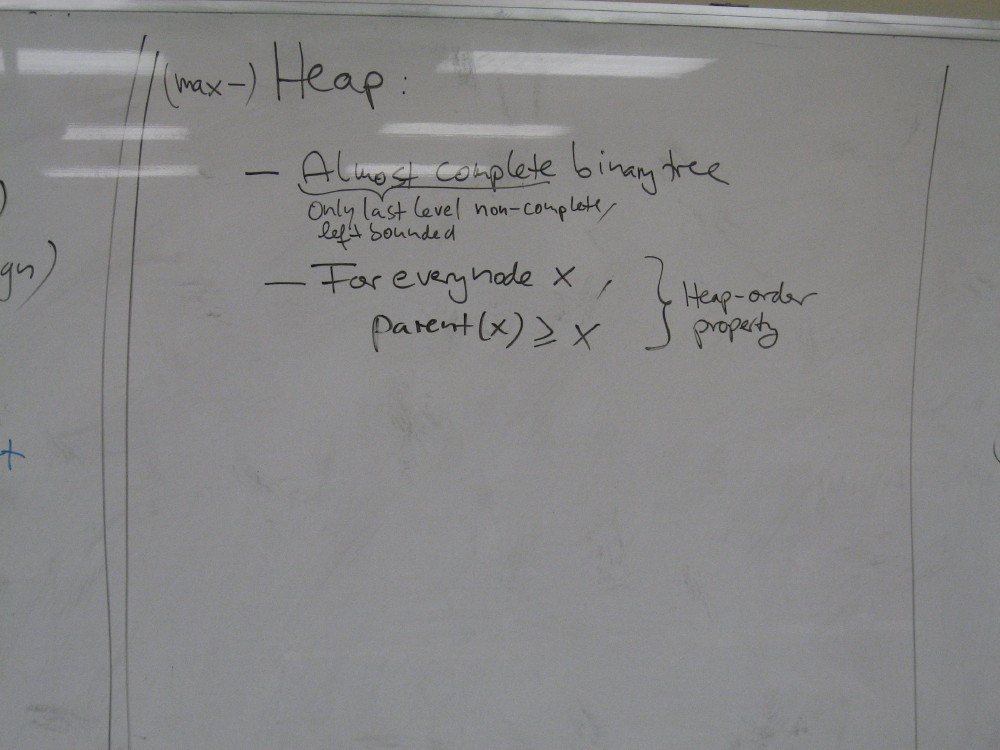 (max-) Heap:
— Almost complete binary tree
Only last level non-complete,
left bounded
— For every node x,
parent(x) ≥ x
Heap-order
property
gn)
+